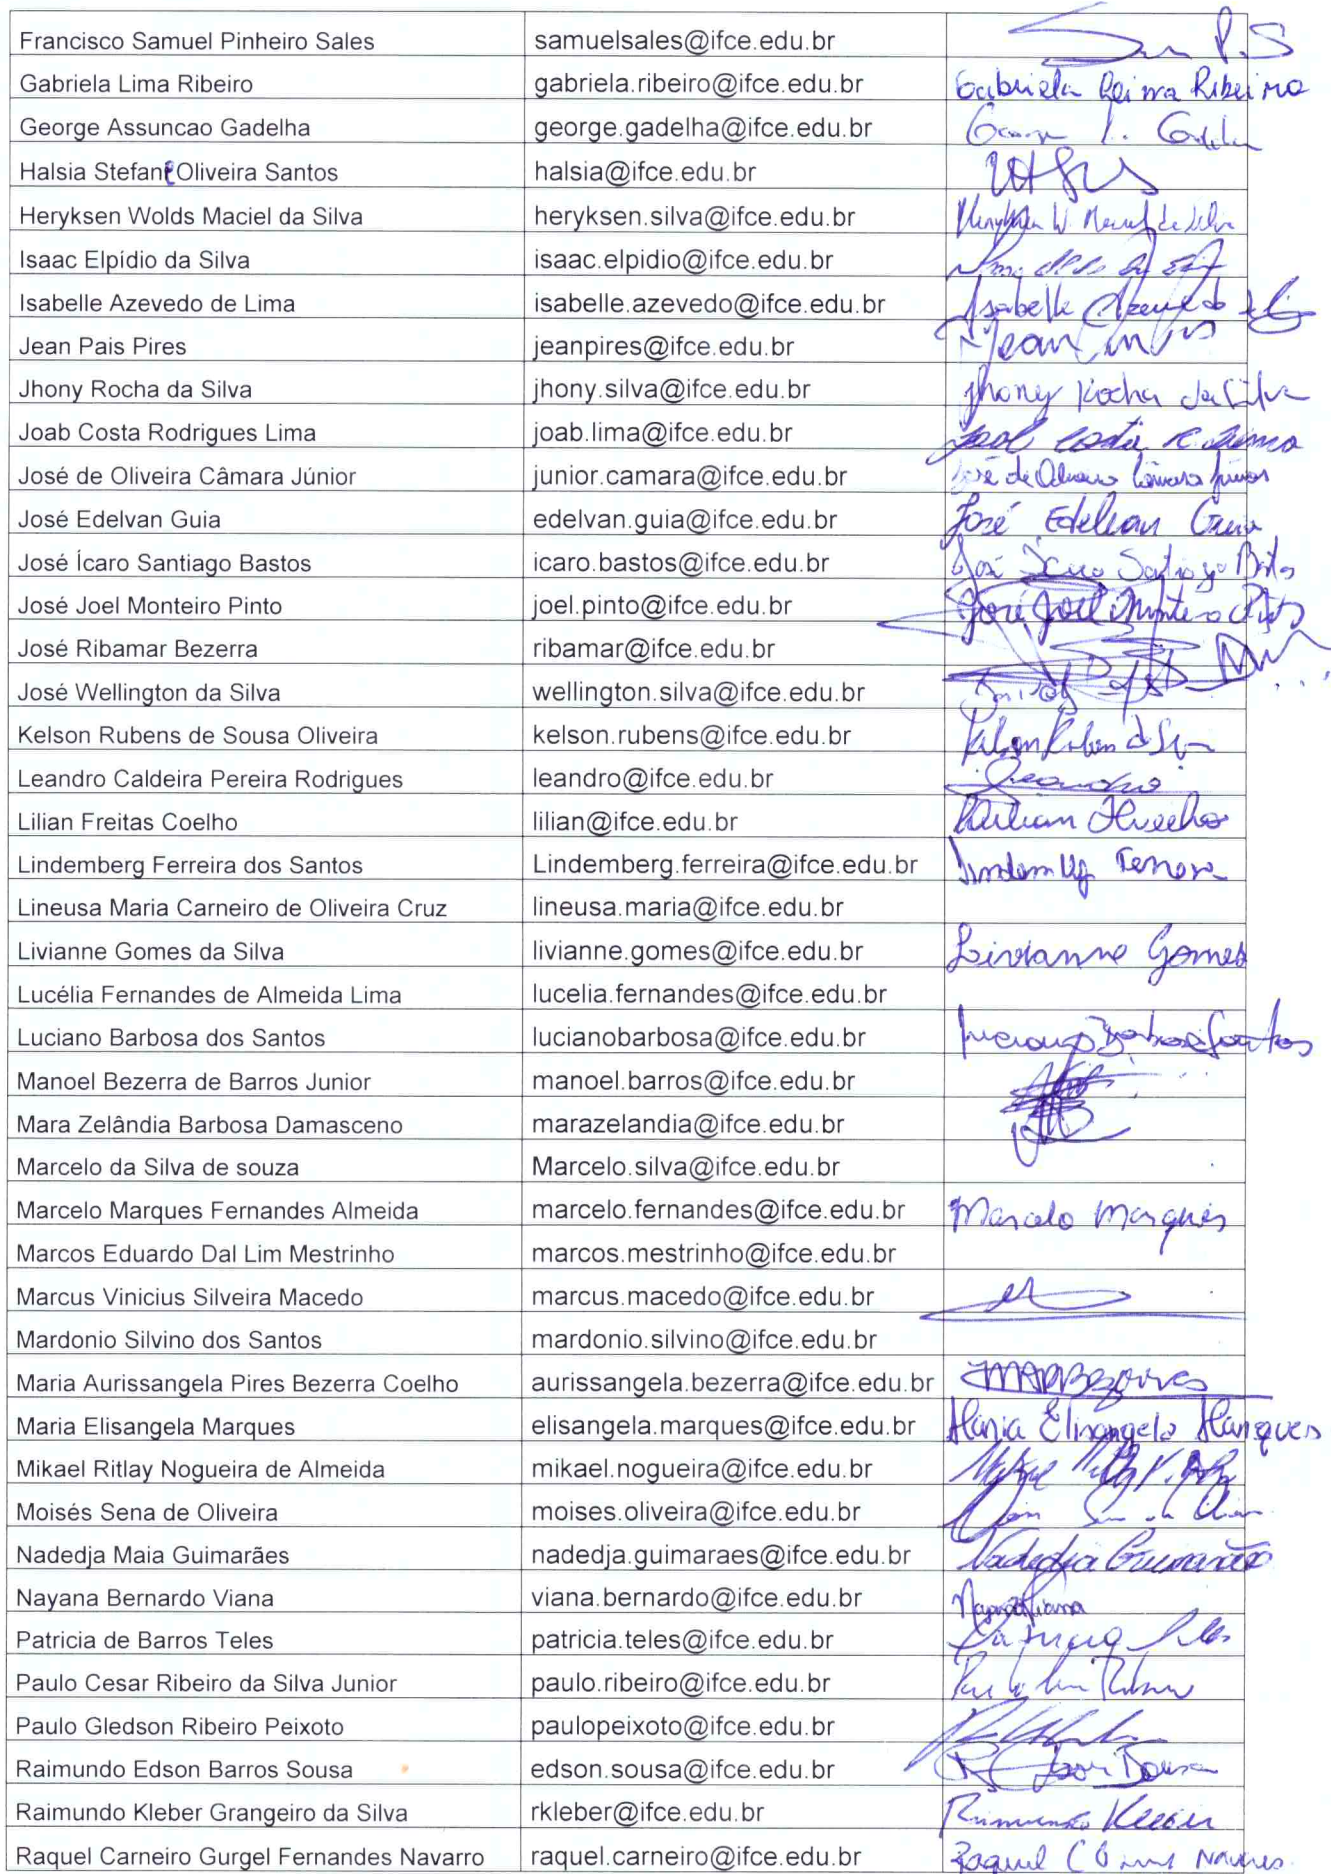 Francisco Samuel Pinheiro Sales samuelsales@ifce.edu.br P.S
Gabriela Lima Ribeiro gabriela.ribeiro@ifce.edu.br Gabriela Lima Ribeiro
George Assuncao Gadelha george.gadelha@ifce.edu.br
Halsia Stefane Oliveira Santos halsia@ifce.edu.br
Heryksen Wolds Maciel da Silva heryksen.silva@ifce.edu.br Heryksen W. Maciel da Silva
Isaac Elpídio da Silva isaac.elpidio@ifce.edu.br
Isabelle Azevedo de Lima isabelle.azevedo@ifce.edu.br Isabelle Azevedo de
Jean Pais Pires jeanpires@ifce.edu.br Jean
Jhony Rocha da Silva jhony.silva@ifce.edu.br Jhony Rocha da Silva
Joab Costa Rodrigues Lima joab.lima@ifce.edu.br Joab Costa R. Lima
José de Oliveira Câmara Júnior junior.camara@ifce.edu.br José de Oliveira Câmara Júnior
José Edelvan Guia edelvan.guia@ifce.edu.br José Edelvan Guia
José Ícaro Santiago Bastos icaro.bastos@ifce.edu.br José Ícaro Santiago Bastos
José Joel Monteiro Pinto joel.pinto@ifce.edu.br José Joel Monteiro Pinto
José Ribamar Bezerra ribamar@ifce.edu.br
José Wellington da Silva wellington.silva@ifce.edu.br
Kelson Rubens de Sousa Oliveira kelson.rubens@ifce.edu.br Kelson Rubens de
Leandro Caldeira Pereira Rodrigues leandro@ifce.edu.br Leandro
Lilian Freitas Coelho lilian@ifce.edu.br Lilian Coelho
Lindemberg Ferreira dos Santos Lindemberg.ferreira@ifce.edu.br Lindemberg Ferreira
Lineusa Maria Carneiro de Oliveira Cruz lineusa.maria@ifce.edu.br
Livianne Gomes da Silva livianne.gomes@ifce.edu.br Livianne Gomes
Lucélia Fernandes de Almeida Lima lucelia.fernandes@ifce.edu.br
Luciano Barbosa dos Santos lucianobarbosa@ifce.edu.br Luciano Barbosa Santos
Manoel Bezerra de Barros Junior manoel.barros@ifce.edu.br
Mara Zelândia Barbosa Damasceno marazelandia@ifce.edu.br
Marcelo da Silva de souza Marcelo.silva@ifce.edu.br
Marcelo Marques Fernandes Almeida marcelo.fernandes@ifce.edu.br Marcelo Marques
Marcos Eduardo Dal Lim Mestrinho marcos.mestrinho@ifce.edu.br
Marcus Vinicius Silveira Macedo marcus.macedo@ifce.edu.br
Mardonio Silvino dos Santos mardonio.silvino@ifce.edu.br
Maria Aurissangela Pires Bezerra Coelho aurissangela.bezerra@ifce.edu.br
Maria Elisangela Marques elisangela.marques@ifce.edu.br Maria Elisangela Marques
Mikael Ritlay Nogueira de Almeida mikael.nogueira@ifce.edu.br
Moisés Sena de Oliveira moises.oliveira@ifce.edu.br
Nadedja Maia Guimarães nadedja.guimaraes@ifce.edu.br Nadedja Guimarães
Nayana Bernardo Viana viana.bernardo@ifce.edu.br Nayana Viana
Patricia de Barros Teles patricia.teles@ifce.edu.br Patricia Teles
Paulo Cesar Ribeiro da Silva Junior paulo.ribeiro@ifce.edu.br
Paulo Gledson Ribeiro Peixoto paulopeixoto@ifce.edu.br
Raimundo Edson Barros Sousa edson.sousa@ifce.edu.br Sousa
Raimundo Kleber Grangeiro da Silva rkleber@ifce.edu.br Raimundo Kleber
Raquel Carneiro Gurgel Fernandes Navarro raquel.carneiro@ifce.edu.br Raquel